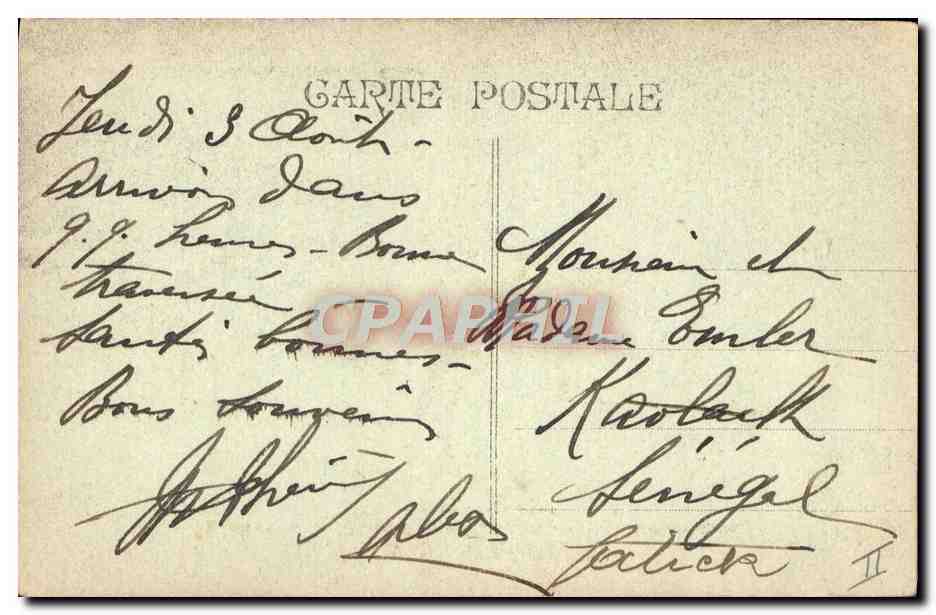 CARTE POSTALE
Jeudi 3 Août -
arrivons dans
q.q. heures - Bonne
traversée -
Santés bonnes -
Bons souvenirs
Monsieur et
Madame Emler
Kaolack
Sénégal
Fatick
II
CPAPHIL